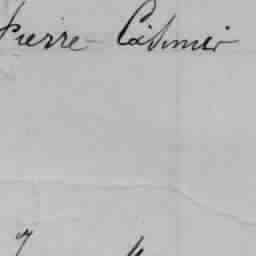 Pierre Casimir